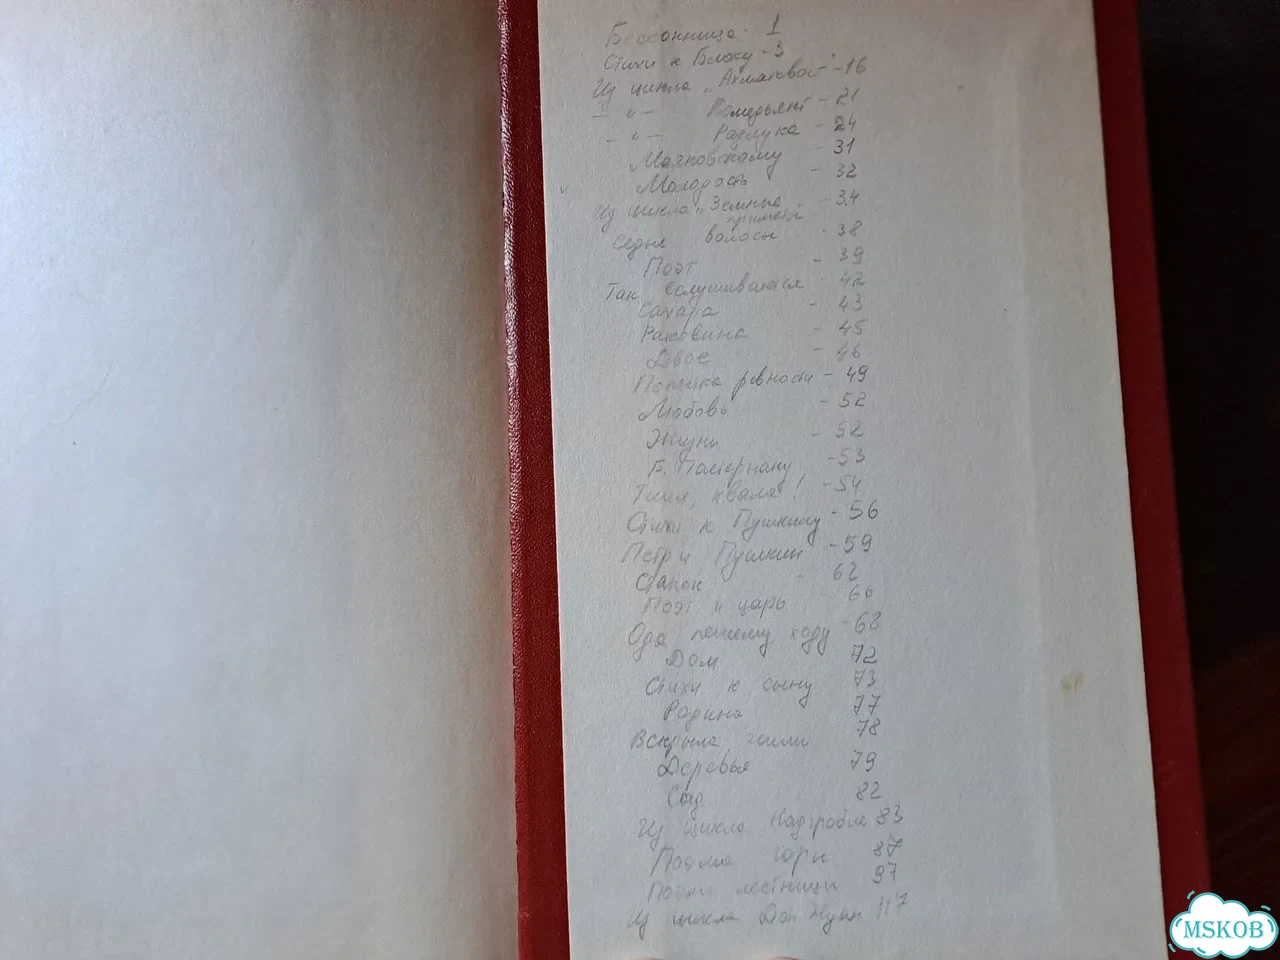 Бессонница - 1
Стихи к Блоку - 3
Из цикла „Ахматовой" - 16
- " - Комедьянт - 21
- " - Разлука - 24
Маяковскому - 31
Молодость - 32
Из цикла „Земные - 34
приметы"
Седые волосы - 38
Поэт - 39
Так вслушиваются - 42
Сахара - 43
Раковина - 45
Двое - 46
Попытка ревности - 49
Любовь - 52
Жизни - 52
Б. Пастернаку - 53
Тише, хвала! - 54
Стихи к Пушкину - 56
Петр и Пушкин - 59
Станок - 62
Поэт и царь - 66
Ода пешему ходу - 68
Дом 72
Стихи к сыну 73
Родина 77
Вскрыла жилы 78
Деревья 79
Сад 82
Из цикла Надгробие 83
Поэма горы 87
Поэма лестницы 97
Из цикла Дон Жуан 117
MSKOB